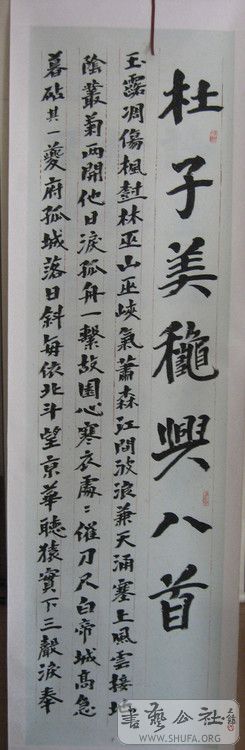 杜子美穐興八首
玉露凋傷楓樹林巫山巫峽氣蕭森江間波浪兼天涌塞上風雲接地
陰叢菊兩開他日淚孤舟一繫故園心寒衣處〻催刀尺白帝城高急
暮砧其一夔府孤城落日斜每依北斗望京華聽猿實下三聲淚奉
書藝公社
WWW.SHUFA.ORG